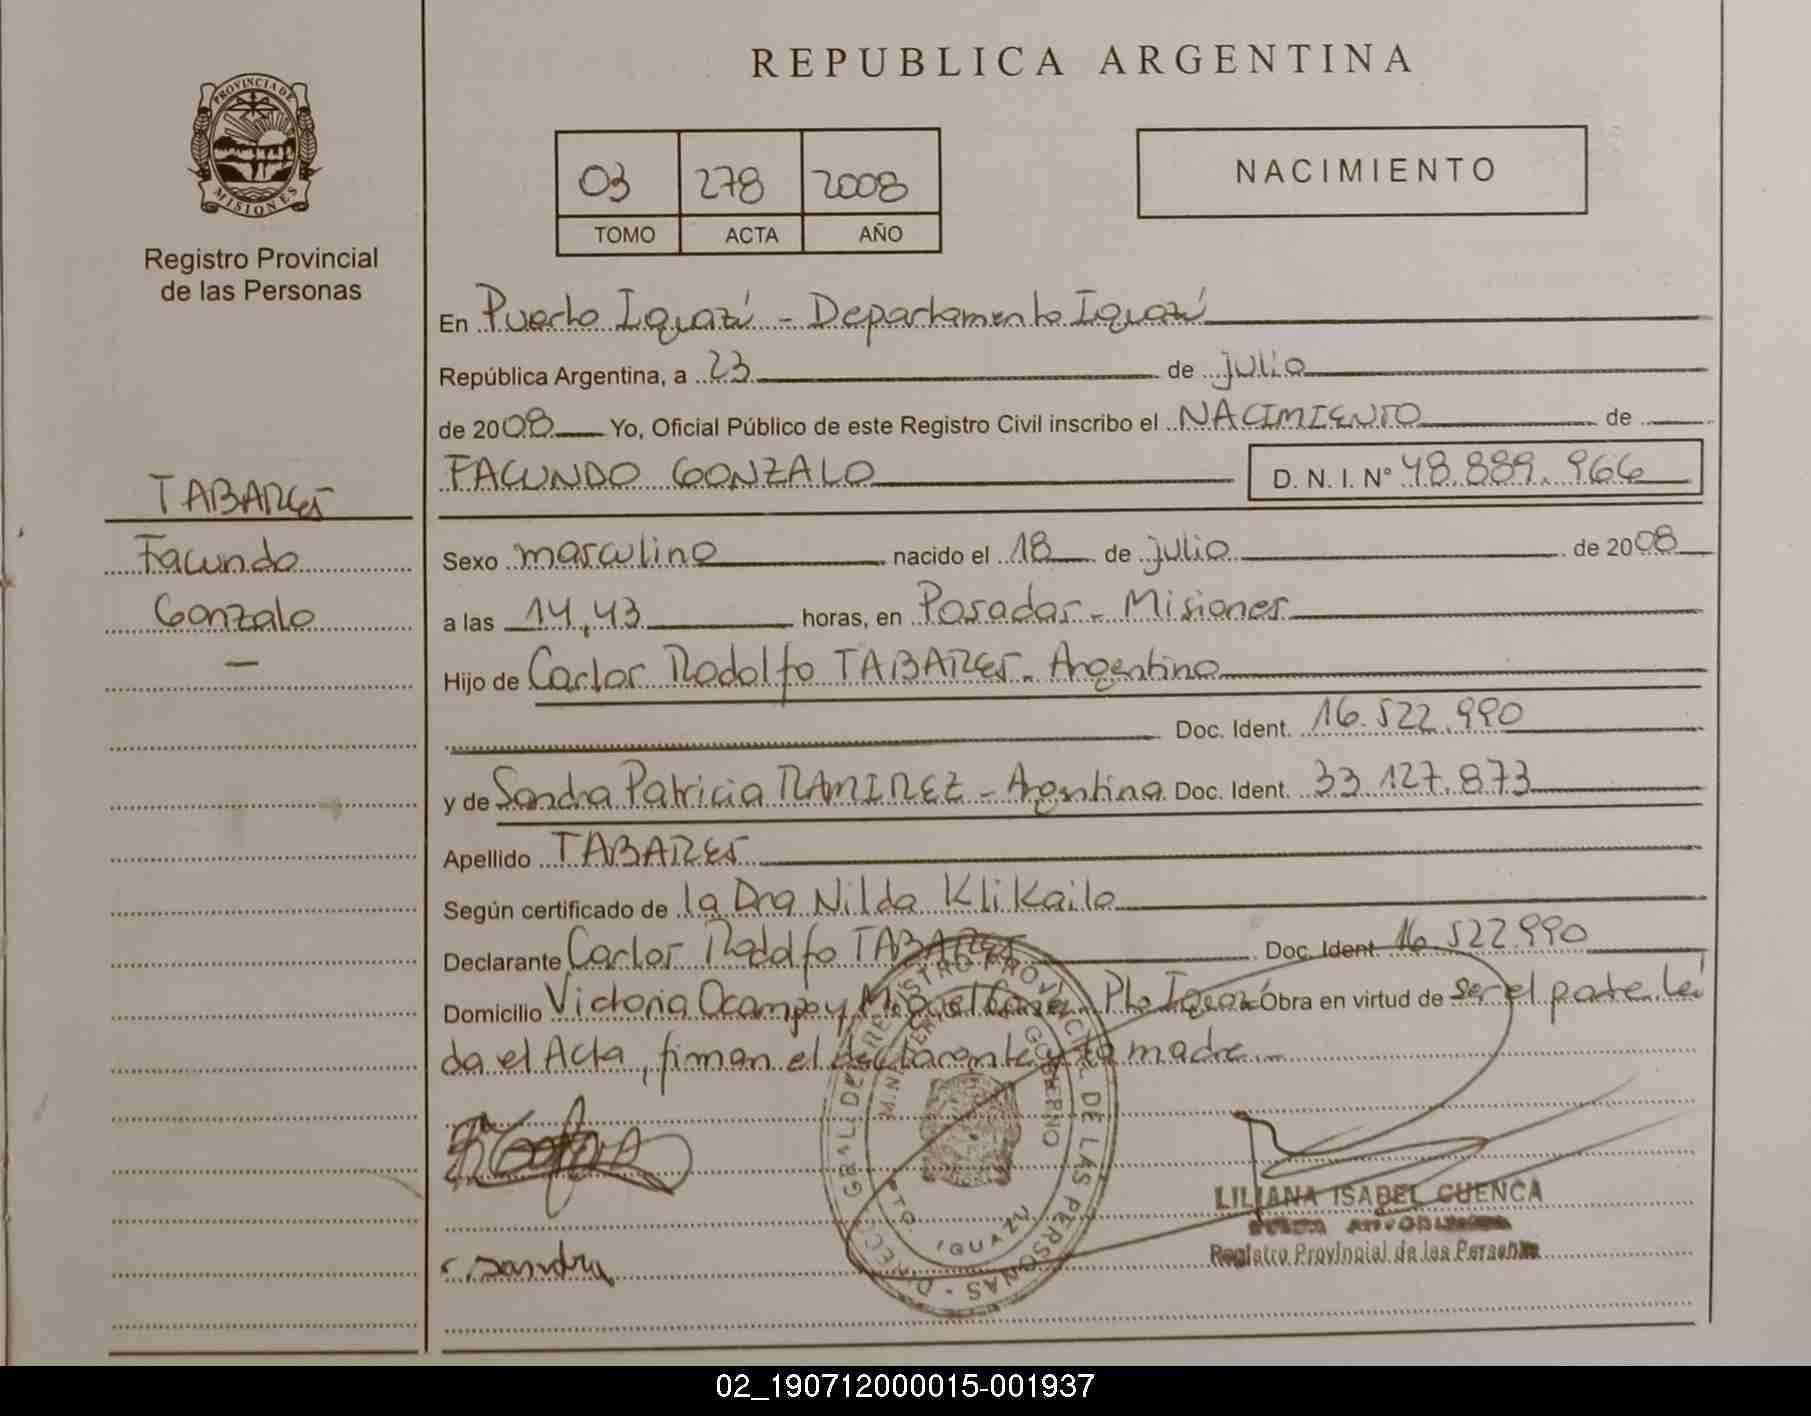 REPUBLICA ARGENTINA
PROVINCIA DE
MISIONES
Registro Provincial
de las Personas
03 278 2008
TOMO ACTA AÑO
NACIMIENTO
En Puerto Iguazú - Departamento Iguazú
República Argentina, a 23 de julio
de 2008 Yo, Oficial Público de este Registro Civil inscribo el NACIMIENTO de
FACUNDO GONZALO D. N. I. N° 48.889.966
TABARES
Facundo
Gonzalo
Sexo masculino nacido el 18 de julio de 2008
a las 14,43 horas, en Posadas - Misiones
Hijo de Carlos Rodolfo TABARES - Argentino
Doc. Ident. 16.522.990
y de Sandra Patricia RAMIREZ - Argentina Doc. Ident. 33 127.873
Apellido TABARES
Según certificado de la Dra Nilda Klikailo
Declarante Carlos Rodolfo TABARES Doc. Ident. 16.522.990
Domicilio Victoria Ocampo y Miguel Pto Iguazú Obra en virtud de ser el padre. Leí
da el Acta, firman el declarante y la madre
Sandra
DIRECC. GRAL. DE REGISTRO PROVINCIAL DE LAS PERSONAS
MINISTERIO GOBIERNO
PTO. IGUAZU
LILIANA ISABEL CUENCA
Registro Provincial de las Personas
02_190712000015-001937